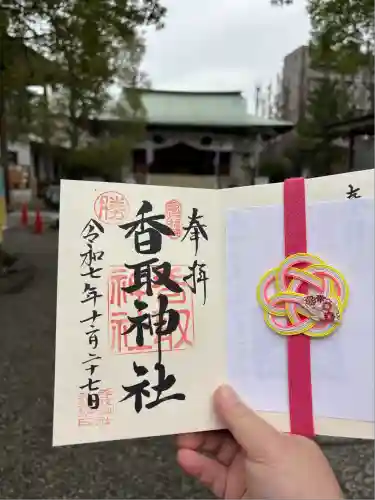 奉拝
香取神社
令和七年十二月二十七日
勝
香取
神社